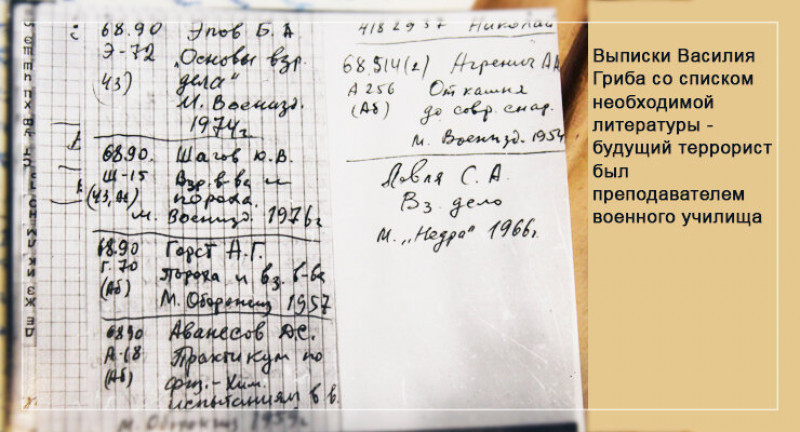 68.90 Эпов Б. А
Э-72 „Основы взр.
(ч3) дела“
М. Воениздт.
1974г
68.90. Шагов Ю.В.
Ш-15 Взр. в-ва и
(ч3, Аб) пороха.
м. Воениздт. 1976г
68.90 Горст А.Г.
Г-70 Пороха и вз. в-ва
(Аб) М. Оборонгиз 1957
6890 Аванесов Д.С.
А-18 Практикум по
(Аб) физ.-хим.
испытаниям в.в.
м. Оборонгиз 1959г
4182937 Николай
68.514(2) Агренич АА
А 256 От камня
(Аб) до совр. снар.
м. Воениздт. 1954
Ловля С. А.
Вз. дело
м. „Недра“ 1966г.
Выписки Василия
Гриба со списком
необходимой
литературы -
будущий террорист
был
преподавателем
военного училища